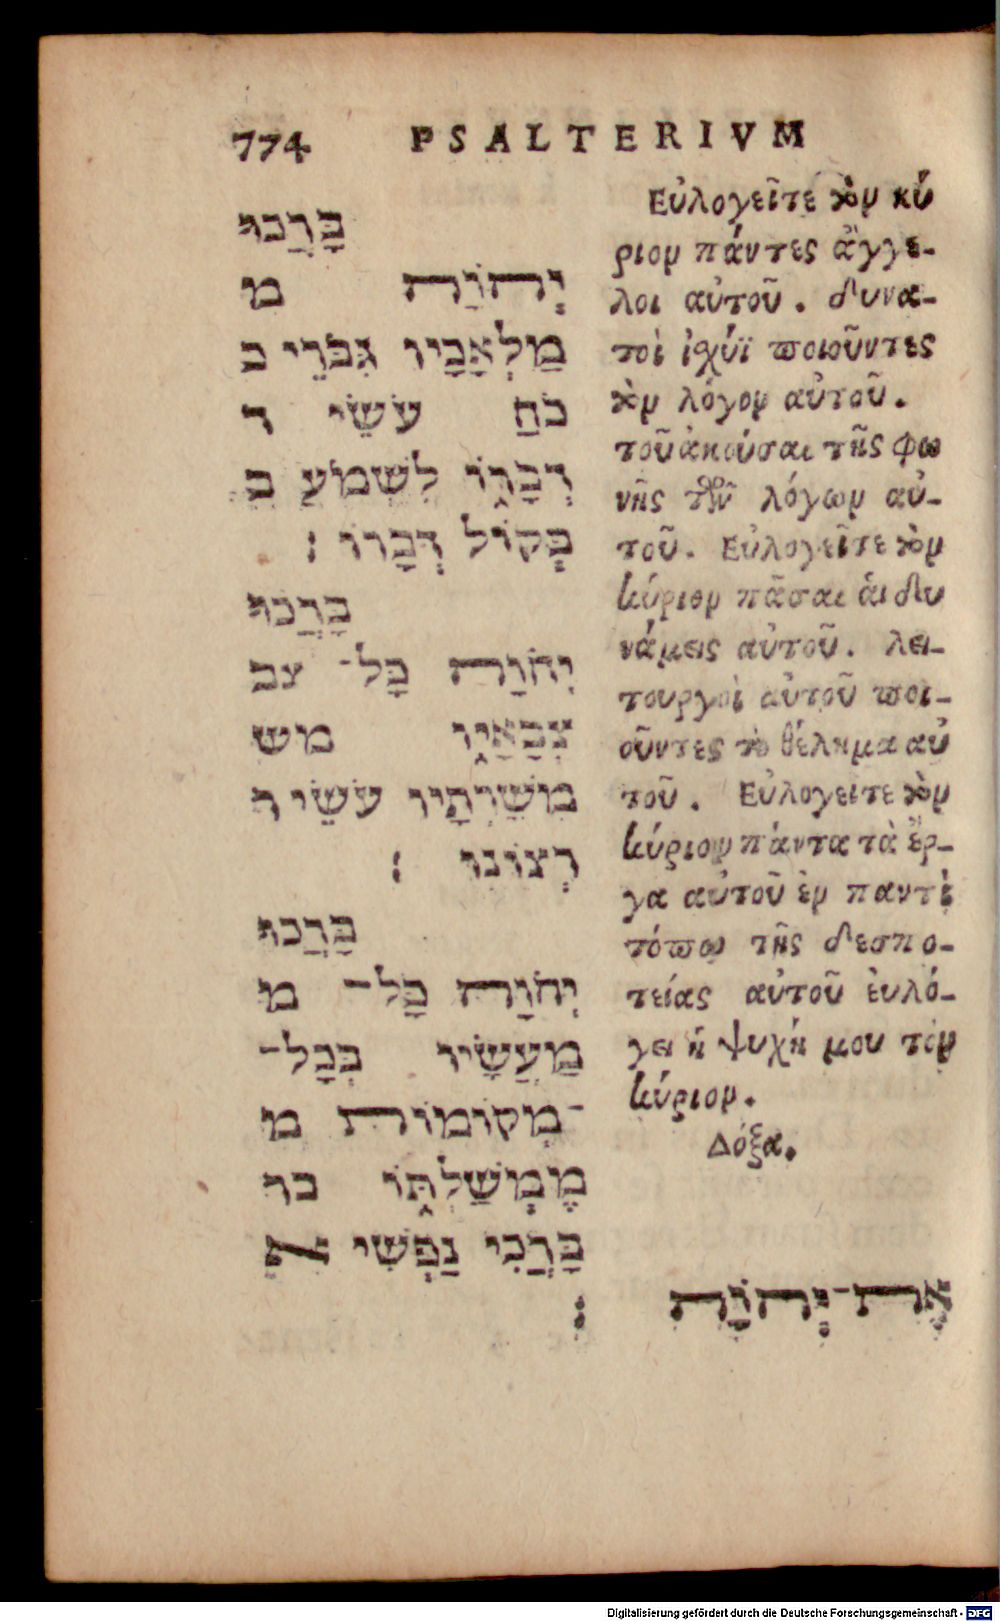 774 PSALTERIVM
בָּרֲכוּ
יְהוָֹה מ
מַלְאָכָיו גִּבֹּרֵי כ
כֹחַ עֹשֵׂי ד
דְבָרֽוֹ לִשְׁמֹעַ בְּ
בְּקוֹל דְּבָרוֹ׃
בָּרֲכוּ
יְהוָֹה כָּל־ צב
צְבָאָיו מש
מְשָׁרְתָיו עֹשֵׂי ר
רְצוֹנוֹ׃
בָּרֲכוּ
יְהוָֹה כָּל־ מ
מַעֲשָׂיו בְּכָל־
־מְקוֹמוֹת מ
מֶמְשַׁלְתּוֹ בר
בָּרֲכִי נַפְשִׁי א
אֶת־יְהוָֹה׃
Εὐλογεῖτε τὸν κύ
ριον πάντες ἄγγε-
λοι αὐτοῦ. δυνα-
τοὶ ἰσχύϊ ποιοῦντες
τὸν λόγον αὐτοῦ.
τοῦ ἀκούσαι τῆς φω
νῆς τῶν λόγων αὐ-
τοῦ. Εὐλογεῖτε τὸν
κύριον πᾶσαι ἁι δυ
νάμεις αὐτοῦ. λει-
τουργοὶ αὐτοῦ ποι-
οῦντες τὸ θέλημα αὐ
τοῦ. Εὐλογεῖτε τὸν
κύριον πάντα τὰ ἔρ-
γα αὐτοῦ ἐν παντὶ
τόπω τῆς δεσπο-
τείας αὐτοῦ ἐυλό-
γει ἡ ψυχή μου τὸν
κύριον.
Δόξα.
Digitalisierung gefördert durch die Deutsche Forschungsgemeinschaft - DFG